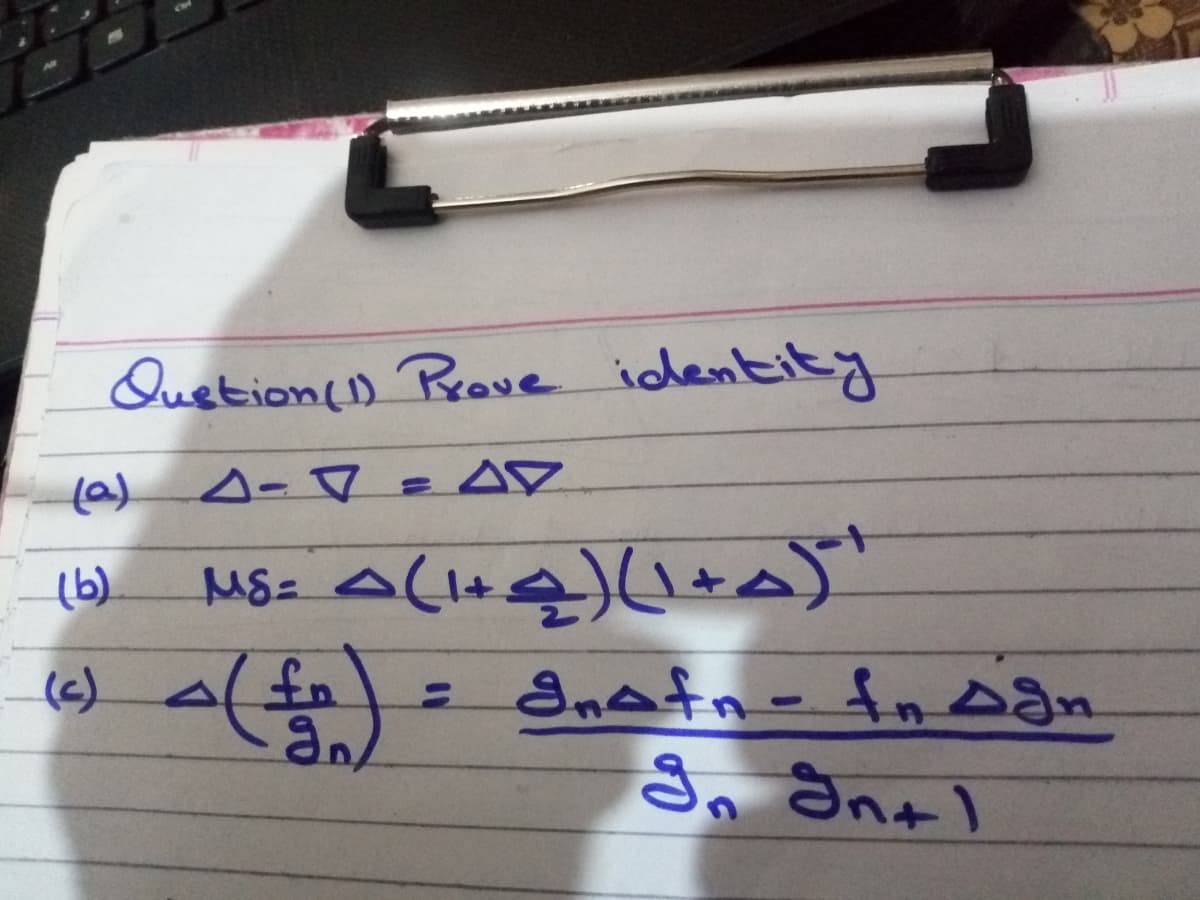 Qustion(1) Prove identity
(a) Δ - ∇ = Δ∇
(b) μδ = Δ(1+Δ/2)(1+Δ)⁻¹
(c) Δ(fn/gn) = (gnΔfn - fnΔgn)/(gn gn+1)